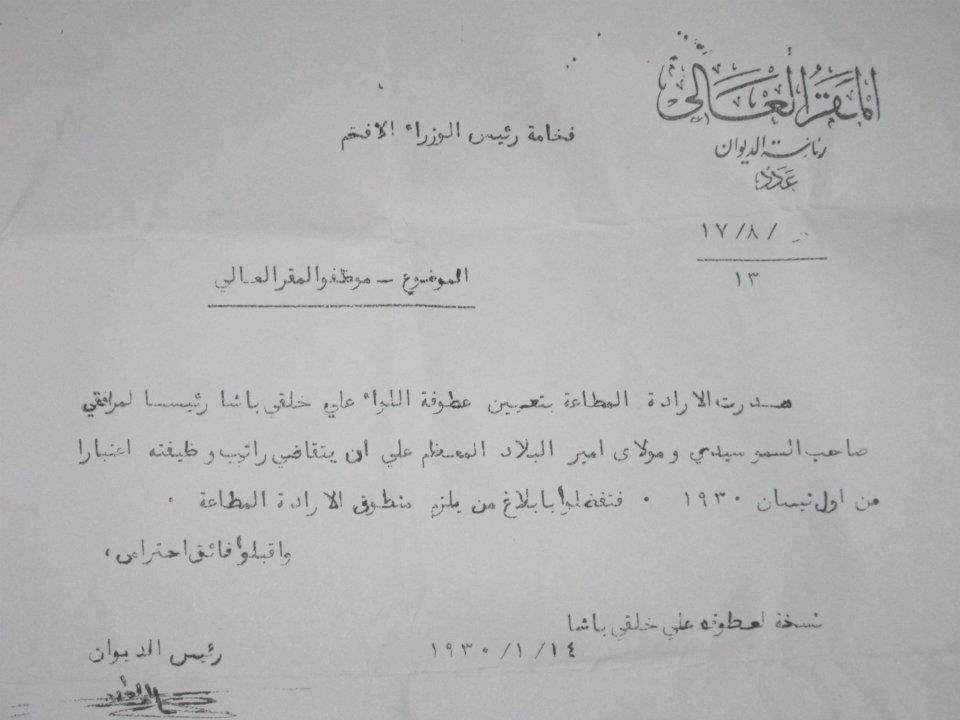 المقر العالي
رئاسة الديوان
عدد
١٧/٨/
١٣
فخامة رئيس الوزراء الافخم
الموضوع - موظفو المقر العالي
صدرت الارادة المطاعة بتعيين عطوفة اللواء علي خلقي باشا رئيسا لمرافقي
صاحب السمو سيدي ومولاي امير البلاد المعظم علي ان يتقاضي راتب وظيفته اعتبارا
من اول نيسان ١٩٣٠ . فتفضلوا بابلاغ من يلزم منطوق الارادة المطاعة .
واقبلوا فائق احترامي ،
نسخة لعطوفه علي خلقي باشا
١٤/١/١٩٣٠
رئيس الديوان